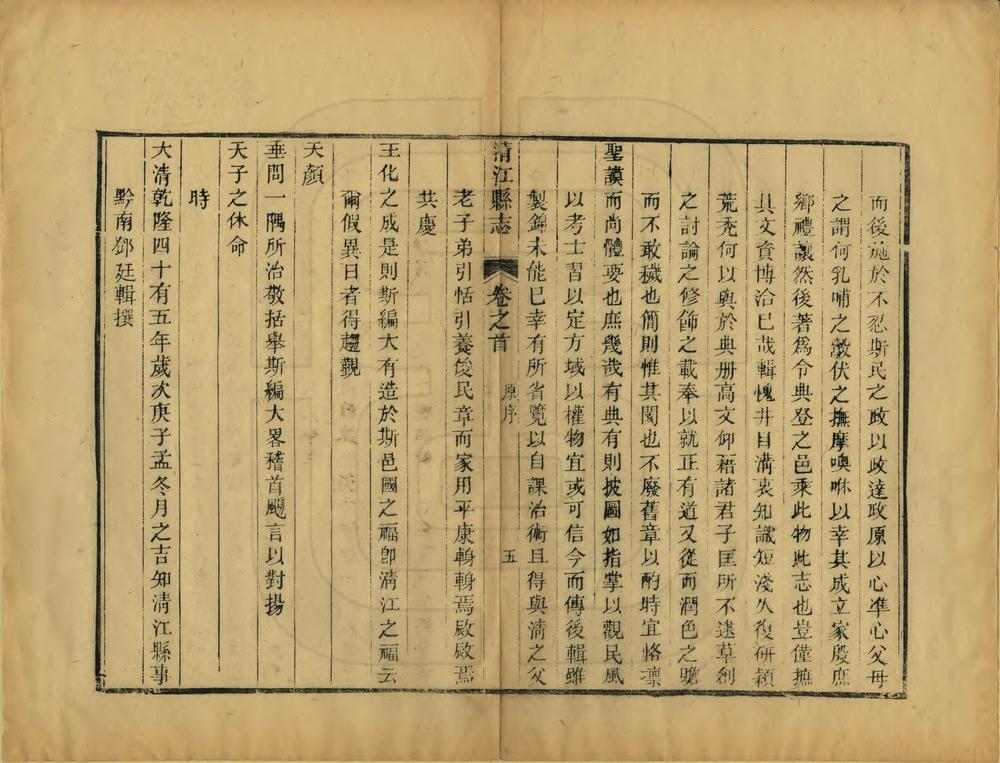 而後施於不忍斯民之政以政達政原以心準心父母
之謂何乳哺之鷇伏之撫摩噢咻以幸其成立家殷庶
鄉禮讓然後著爲令典登之邑乘此物此志也豈僅摭
其文資博洽已哉輯愧井目溝衷知識短淺久復研穎
荒禿何以與於典册高文仰藉諸君子匡所不逮草創
之討論之修飾之載奉以就正有道又從而潤色之贍
而不敢穢也簡則惟其闕也不廢舊章以酌時宜恪凛
聖謨而尚體要也庶幾哉有典有則披圖如指掌以觀民風
以考士習以定方域以權物宜或可信今而傳後輯雖
製錦未能已幸有所省覽以自課治術且得與清之父
清江縣志 卷之首 原序 五
老子弟引恬引養俊民章而家用平康鶣鶣焉啟啟焉
共慶
王化之成是則斯編大有造於斯邑國之福卽清江之福云
爾假異日者得趨觀
天顏
垂問一隅所治敬括舉斯編大畧稽首颺言以對揚
天子之休命
時
大清乾隆四十有五年歲次庚子孟冬月之吉知清江縣事
黔南鄧廷輯撰